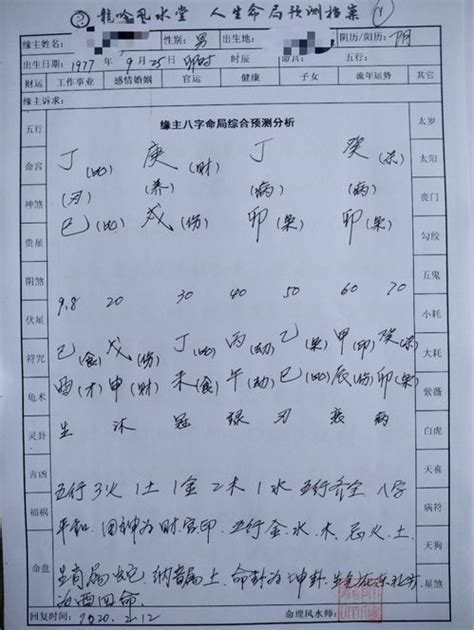 ② 龍吟风水堂 人生命局预测档案 ①
缘主姓名: 性别: 男 出生地: 阴历/阳历: 阴
出生日期: 1977年9月25日 卯时 时辰 命宫: 五行:
财运 工作事业 感情婚姻 官运 健康 子女 流年运势 其它
缘主诉求:
五行 缘主八字命局综合预测分析 太岁
命宫 丁(比) 庚(财) 丁 癸(杀) 太阳
神煞 (刃) (养) (病) (病) 丧门
贵星 巳(比) 戌(伤) 卯(枭) 卯(枭) 勾绞
阴煞 五鬼
伏星 9.8 20 30 40 50 60 70 小耗
符咒 己(食) 戊(伤) 丁(比) 丙(劫) 乙(枭) 甲(印) 癸(杀) 大耗
龟术 酉(才) 申(财) 未(食) 午(劫) 巳(比) 辰(伤) 卯(枭) 紫薇
灵卦 生 沐 冠 禄 刃 衰 病 白虎
吉凶 天喜
福祸 五行3火1土1金2木1水五行齐全, 八字 病符
平和. 用神为财官印. 五行金、水、木. 忌火、土. 天狗
命盘 生肖属蛇. 纳音属土. 命卦为坤卦. 星煞
西四命.
回复时间: 2020.2.12 命理风水师: